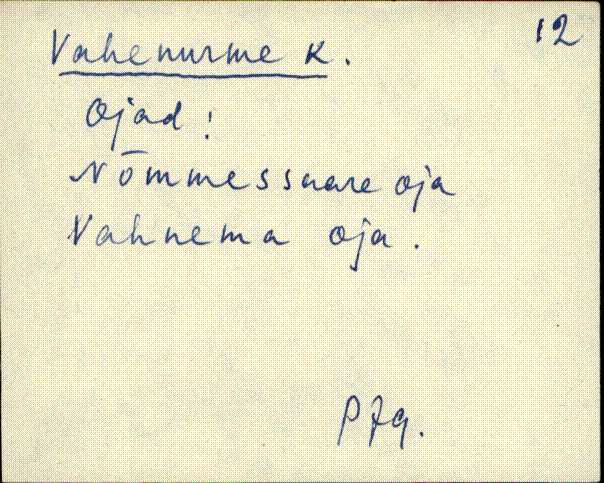 12
Vahenurme k.
Ojad:
Nõmmessaare oja
Vahnema oja.
PJg.